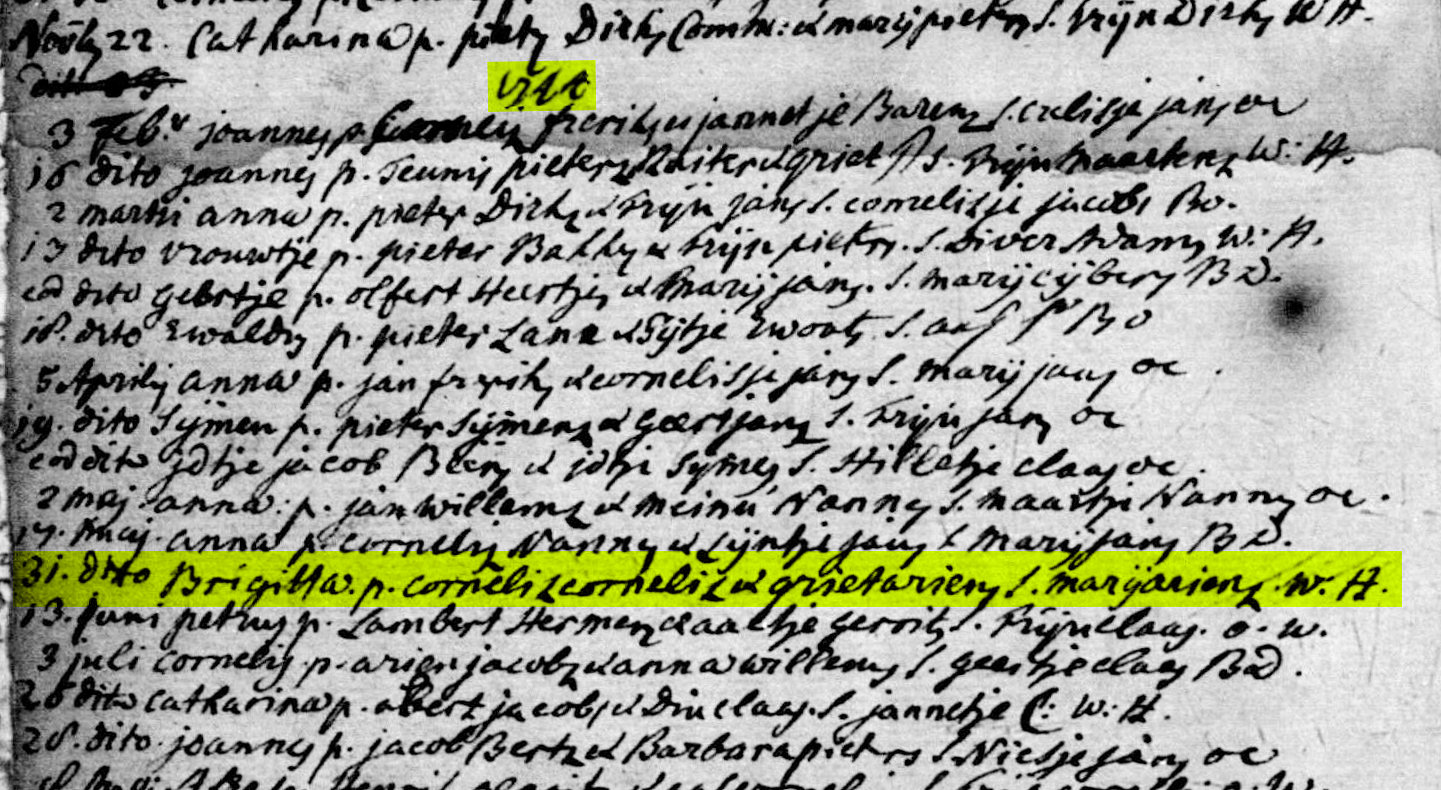 Novb 22. Catharina p. pietz Dirkz Comm: & marij pieters s. Trijn Dirks W H.
dito
1744
3 Feb.r joannes p. freriks & jannetje Barenz s. jans oc
16 dito joannes p. Teunis pietersz Ruiter & griet s. Trijn Maartens W: H.
2 martii anna p. pieter Dirkz & Trijn jans s. cornelisje jacobs Bo.
13 dito vrouwtje p. pieter Bakker & Trijn pieters. s. Diver Adams W: H.
eod dito gebrtje p. olfert Heertjes & Marij jans. s. marij cijbers B D.
18. dito Ewaldus p. pieter Lane & Tijtje Ewouts s. Bo
5 Aprilis anna p. jan freriks & cornelisje jans s. marij jans oc
19. dito Sijmen p. pieter Sijmensz & Geert jans s. Trijn jans oc
eod dito jdtje jacob & jdtje Sijmes s. Hilletje claas oc.
2 mej anna. p. jan willemsz & meinu Nannes s. maartje Nannes oc.
17. maij. anna p. cornelis Nannes & Lijntje jans s marij jans B D.
31. dito Brigitta. p. cornelis cornelisz & griet ariens s. marij ariens. w. H.
13. Juni petrus p. Lambert Hermensz & aaltje gerrits s. Trijn claas. o. w.
3 juli cornelis. p. arien jacobz & anna willems s. geertje claas Bd.
26 dito catharina p. albert jacobs & Diu claas. s. jannetje C: W: H.
28. dito. joannes p. jacob Bertz & Barbara pieters s. Niesje jans oc